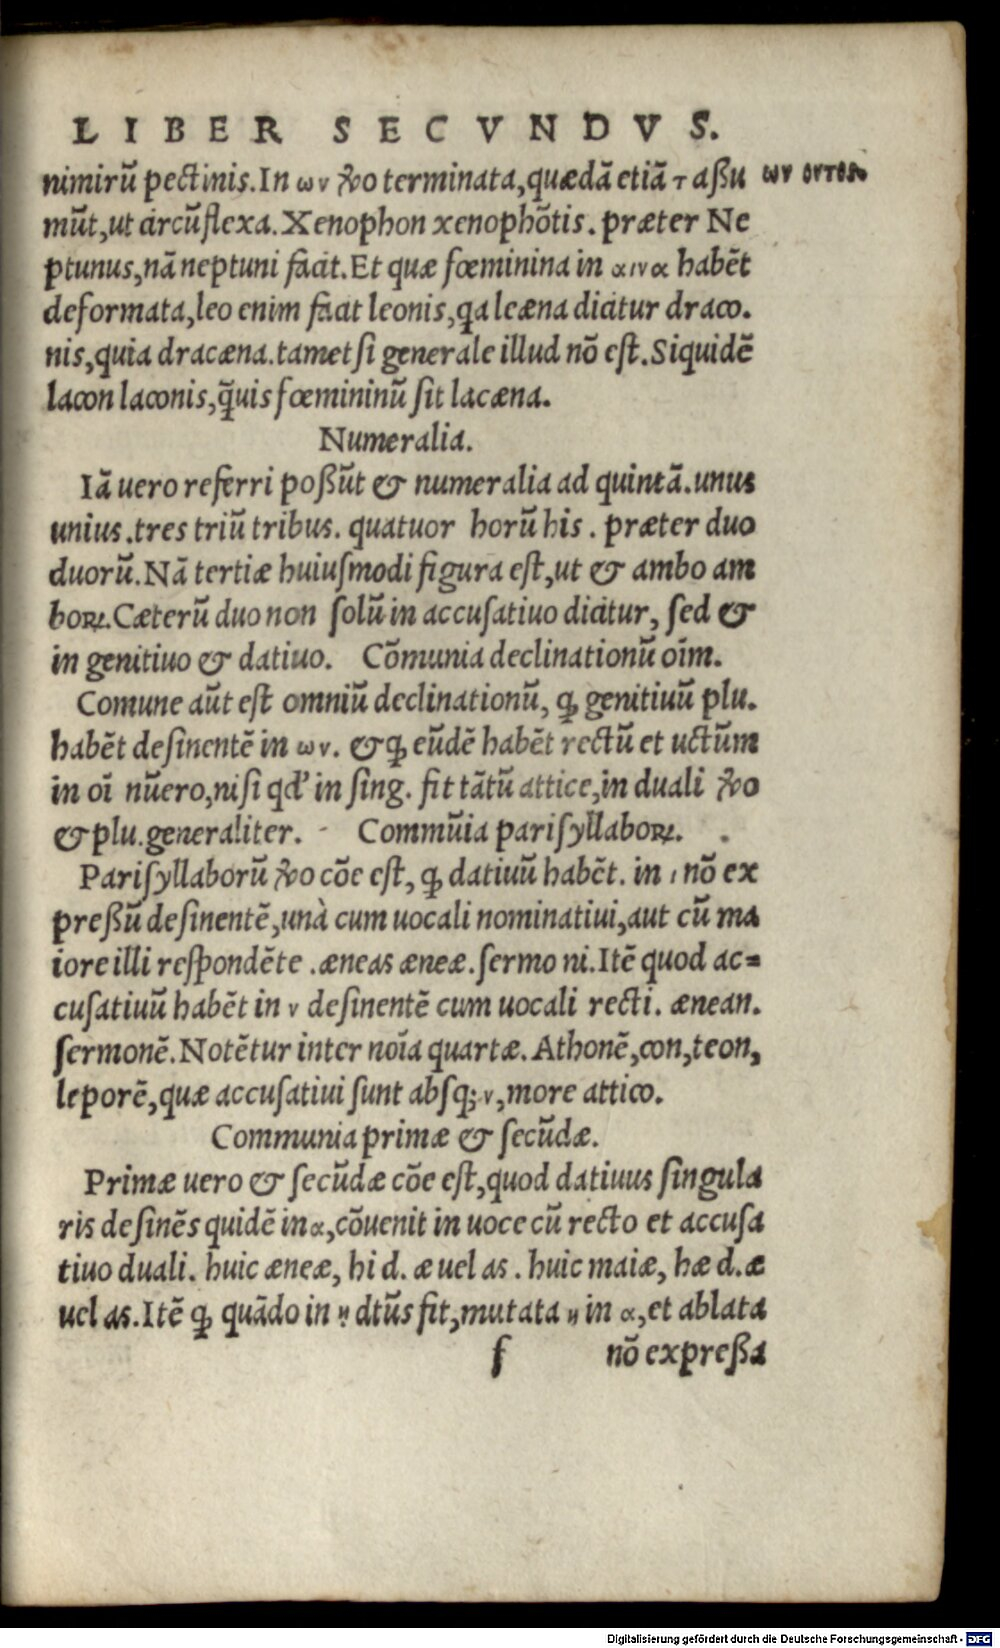 LIBER SECVNDVS.
nimirũ pectinis. In ων ꝟo terminata, quædã etiã τ aßu ων οντος
mũt, ut circũflexa. Xenophon xenophõtis. præter Ne
ptunus, nã neptuni facit. Et quæ fœminina in αινα habẽt
deformata, leo enim facit leonis, qa leæna dicitur draco.
nis, quia dracæna. tametsi generale illud nõ est. Siquidẽ
lacon laconis, q̃uis fœmininũ sit lacæna.
Numeralia.
Iã uero referri poßũt & numeralia ad quintã. unus
unius. tres triũ tribus. quatuor horũ his. præter duo
duorũ. Nã tertiæ huiusmodi figura est, ut & ambo am
boꝝ. Cæterũ duo non solũ in accusatiuo dicitur, sed &
in genitiuo & datiuo. Cõmunia declinationũ oĩm.
Comune aũt est omniũ declinationũ, ꝙ genitiuũ plu.
habẽt desinentẽ in ων. & ꝙ eũdẽ habẽt rectũ et uctũm
in oĩ nũero, nisi qd' in sing. fit tãtũ attice, in duali ꝟo
& plu. generaliter. Commũia parisyllaboꝝ.
Parisyllaborũ ꝟo cõe est, ꝙ datiuũ habẽt. in ι nõ ex
preßũ desinentẽ, unà cum uocali nominatiui, aut cũ ma
iore illi respondẽte. æneas æneæ. sermo ni. Itẽ quod ac=
cusatiuũ habẽt in ν desinentẽ cum uocali recti. ænean.
sermonẽ. Notẽtur inter noĩa quartæ. Athonẽ, con, teon,
leporẽ, quæ accusatiui sunt absq; ν, more attico.
Communia primæ & secũdæ.
Primæ uero & secũdæ cõe est, quod datiuus singula
ris desinẽs quidẽ in α, cõuenit in uoce cũ recto et accusa
tiuo duali. huic æneæ, hi d. æ uel as. huic maiæ, hæ d. æ
uel as. Itẽ ꝙ quãdo in ῃ dtũs fit, mutata η in α, et ablata
f nõ expreßa
Digitalisierung gefördert durch die Deutsche Forschungsgemeinschaft - DFG